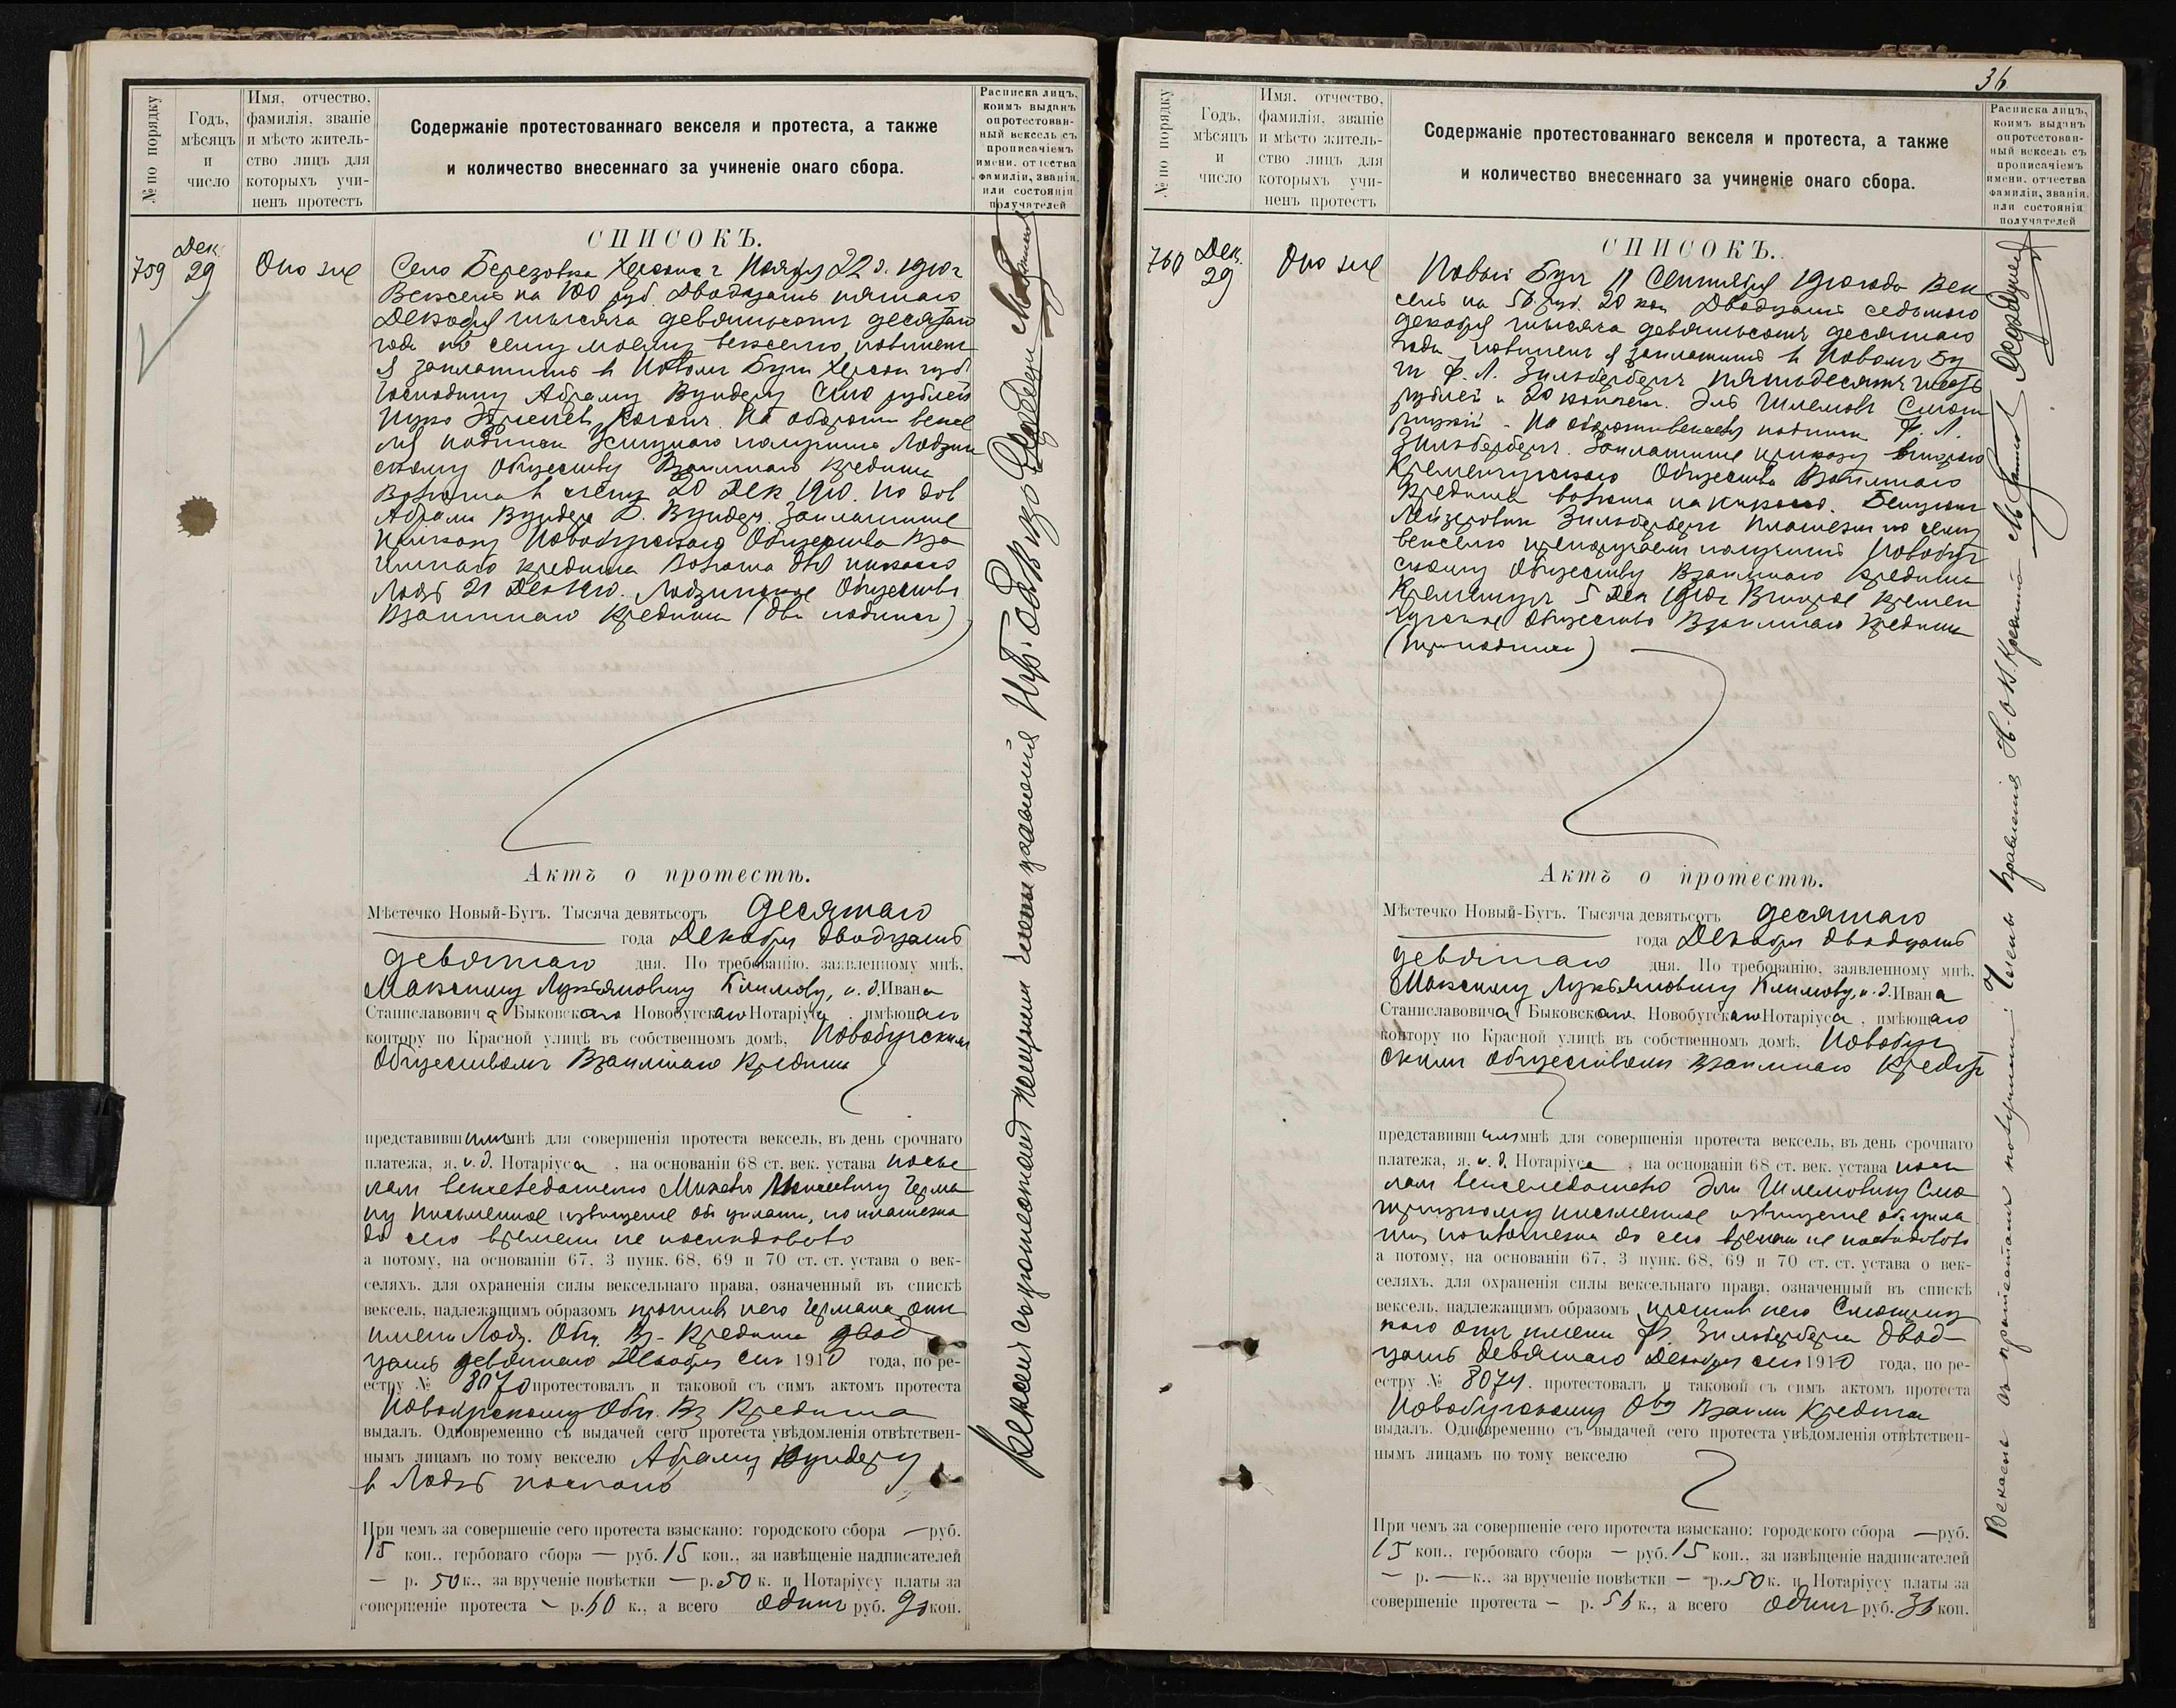 № по порядку
Годъ, мѣсяцъ и число
Имя, отчество, фамилія, званіе и мѣсто жительство лицъ для которыхъ учиненъ протестъ
Содержаніе протестованнаго векселя и протеста, а также
и количество внесеннаго за учиненіе онаго сбора.
Расписка лицъ,
коимъ выданъ
опротестован-
ный вексель съ
прописаніемъ
имени, отчества
фамиліи, званія,
или состоянія
получателей
759
Дек.
29
Оно же
СПИСОКЪ.
Село Березовка Херсон г Ноября 22 д. 1910 г
Вексель на 100 руб. Двадцать пятаго
Декабря тысяча девятьсотъ десятаго
года по сему моему векселю повиненъ
я заплатить в Новом Буге Херсон губ
Господину Абраму Вундеру Сто рублей
На обороте векселя
Лодзин
скому Обществу Взаимнаго Кредита
20 Дек 1910. По дов
Абрама Вундера Вундер. Заплатите
приказу Новобугскаго Общества Вза
имнаго кредита
Лодзь 21 Дек 1910. Лодзинское Общество
Взаимнаго Кредита (две подписи)
Актъ о протестѣ.
Мѣстечко Новый-Бугъ. Тысяча девятьсотъ десятаго
года Декабря двадцать
девятаго дня. По требованію, заявленному мнѣ,
Максиму Лукьяновичу Климову, и. д. Ивана
Станиславовича Быковскаго Новобугскаго Нотаріуса, имѣющаго
контору по Красной улицѣ въ собственномъ домѣ, Новобугским
Обществомъ Взаимнаго Кредита
представившимъ мнѣ для совершенія протеста вексель, въ день срочнаго
платежа, я, и. д. Нотаріуса, на основаніи 68 ст. век. устава посы
лал векселедателю Герма
ну письменное извещение об уплате, но платежа
до сего времени не последовало
а потому, на основаніи 67, 3 пунк. 68, 69 и 70 ст. ст. устава о век-
селяхъ, для охраненія силы вексельнаго права, означенный въ спискѣ
вексель, надлежащимъ образомъ против него Германа от
имени Лодз. Общ. Вз. Кредита двад
цать девятаго Декабря сего 1910 года, по ре-
естру № 8070 протестовалъ и таковой съ симъ актомъ протеста
Новобугскому Общ. Вз Кредита
выдалъ. Одновременно съ выдачей сего протеста увѣдомленія отвѣтствен-
нымъ лицамъ по тому векселю Абраму Вундеру
в Лодзь послано
При чемъ за совершеніе сего протеста взыскано: городского сбора — руб.
15 коп., гербоваго сбора — руб. 15 коп., за извѣщеніе надписателей
— р. 50 к., за врученіе повѣстки — р. 50 к. и Нотаріусу платы за
совершеніе протеста — р. 60 к., а всего один руб. 90 коп.
Вексель с протестом получил Член правления
36
№ по порядку
Годъ, мѣсяцъ и число
Имя, отчество, фамилія, званіе и мѣсто жительство лицъ для которыхъ учиненъ протестъ
Содержаніе протестованнаго векселя и протеста, а также
и количество внесеннаго за учиненіе онаго сбора.
Расписка лицъ,
коимъ выданъ
опротестован-
ный вексель съ
прописаніемъ
имени, отчества
фамиліи, званія,
или состоянія
получателей
760
Дек.
29
Оно же
СПИСОКЪ.
Новый Буг 11 Сентября 1910 года Век
сель на 56 руб. 20 коп Двадцать седьмого
декабря тысяча девятьсотъ десятаго
года повиненъ я заплатить в Новом Бу
ге Ф. Л. Зильбербергъ пятьдесятъ шесть
рублей и 20 копеек. Эля Шлемовъ
На обороте векселя подпись Ф. Л.
Зильберберг. Заплатите приказу второго
Кременчугскаго Общества Взаимнаго
Кредита
Зильберберг Платеж по сему
векселю препоручаем получить Новобуг
скому Обществу Взаимнаго Кредита
Кременчуг 5 Дек 1910 г Второе Кремен
чугское Общество Взаимнаго Кредита
(три подписи)
Актъ о протестѣ.
Мѣстечко Новый-Бугъ. Тысяча девятьсотъ десятаго
года Декабря двадцать
девятаго дня. По требованію, заявленному мнѣ,
Максиму Лукьяновичу Климову, и. д. Ивана
Станиславовича Быковскаго Новобугскаго Нотаріуса, имѣющаго
контору по Красной улицѣ въ собственномъ домѣ, Новобуг
ским обществом Взаимнаго Кредита
представившимъ мнѣ для совершенія протеста вексель, въ день срочнаго
платежа, я, и. д. Нотаріуса, на основаніи 68 ст. век. устава посы
лал векселедателю Эли Шлемовичу
письменное извещение об упла
те, но платежа до сего времени не последовало
а потому, на основаніи 67, 3 пунк. 68, 69 и 70 ст. ст. устава о век-
селяхъ, для охраненія силы вексельнаго права, означенный въ спискѣ
вексель, надлежащимъ образомъ против него
от имени Зильберберга двад-
цать девятаго Декабря сего 1910 года, по ре-
естру № 8074, протестовалъ и таковой съ симъ актомъ протеста
Новобугскому Общ Взаимн Кредита
выдалъ. Одновременно съ выдачей сего протеста увѣдомленія отвѣтствен-
нымъ лицамъ по тому векселю
При чемъ за совершеніе сего протеста взыскано: городского сбора — руб.
15 коп., гербоваго сбора — руб. 15 коп., за извѣщеніе надписателей
— р. — к., за врученіе повѣстки — р. 50 к. и Нотаріусу платы за
совершеніе протеста — р. 56 к., а всего один руб. 36 коп.
Вексель с протестом получил: Член Правления